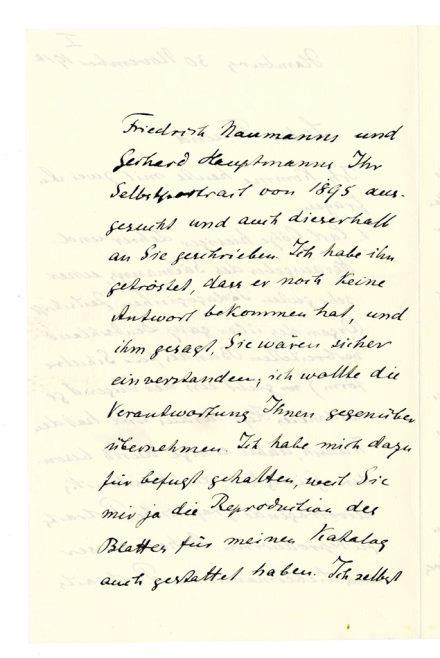 Friedrich Naumanns und
Gerhard Hauptmanns Ihr
Selbstportrait von 1895 aus-
gesucht und auch dieserhalb
an Sie geschrieben. Ich habe ihn
getröstet, dass er noch keine
Antwort bekommen hat, und
ihm gesagt, Sie wären sicher
einverstanden; ich wollte die
Verantwortung Ihnen gegenüber
übernehmen. Ich habe mich dazu
für befugt gehalten, weil Sie
mir ja die Reproduction des
Blattes für meinen Katalog
auch gestattet haben. Ich selbst